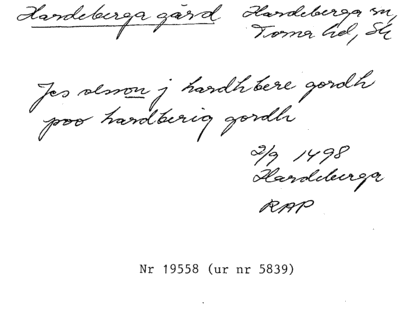 Hardeberga gård Hardeberga sn,
Torna hd, Sk
Jes olsson j hardhbere gordh
poo hardberig gordh
2/9 1498
Hardeberga
RAP
Nr 19558 (ur nr 5839)